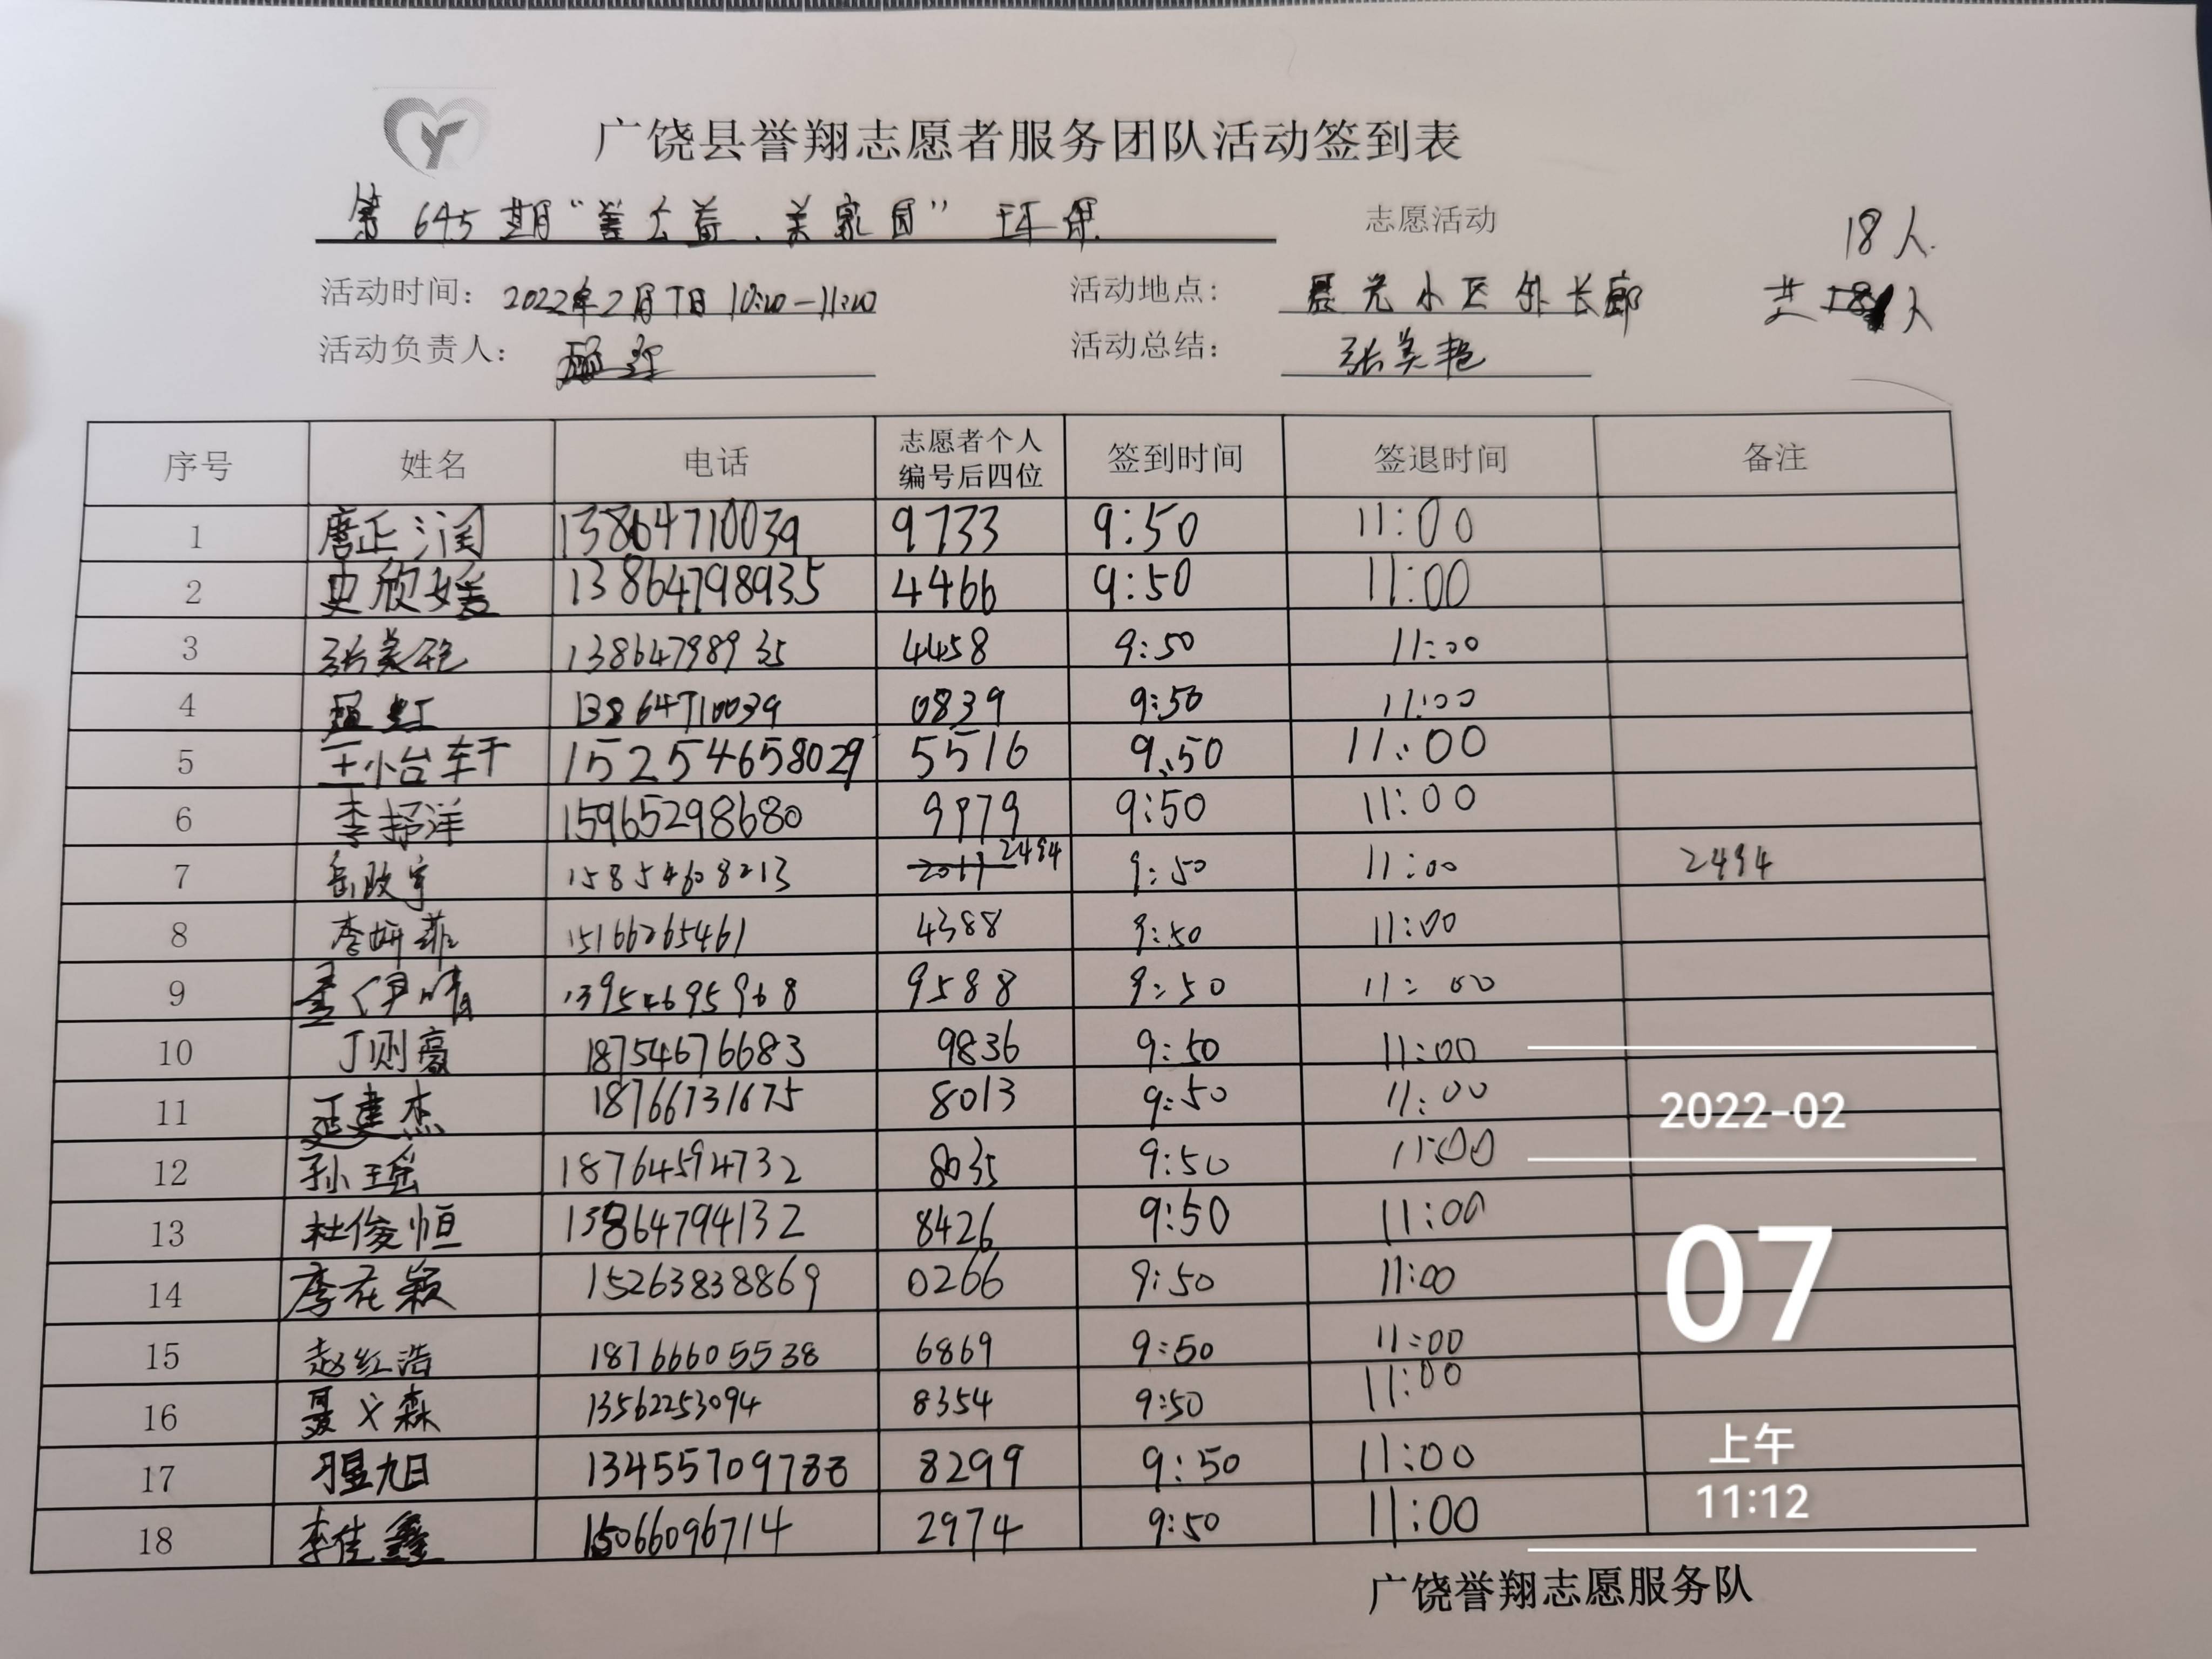 广饶县誉翔志愿者服务团队活动签到表
第645期“善公益、美家园”环保 志愿活动 18人
活动时间: 2022年2月7日 10:00-11:00 活动地点: 晨光小区外长廊 共18人
活动负责人: 活动总结: 张美艳
序号 姓名 电话 志愿者个人编号后四位 签到时间 签退时间 备注
1 唐正润 13864710039 9733 9:50 11:00
2 史欣媛 13864798935 4466 9:50 11:00
3 张美艳 13864798935 4458 9:50 11:00
4 13864710039 0839 9:50 11:00
5 王小台车干 15254658029 5516 9:50 11:00
6 李抒洋 15965298680 9979 9:50 11:00
7 岳政宇 15854608213 2017 2494 9:50 11:00 2494
8 李妍菲 15166265461 4388 9:50 11:00
9 孟伊晴 13954695968 9588 9:50 11:00
10 丁则豪 18754676683 9836 9:50 11:00
11 延建杰 18766731675 8013 9:50 11:00
12 孙瑶 18764594732 8035 9:50 11:00
13 杜俊恒 13864794132 8426 9:50 11:00
14 李在颖 15263838869 0266 9:50 11:00
15 赵红浩 18766605538 6869 9:50 11:00
16 聂义森 13562253094 8354 9:50 11:00
17 翟旭 13455709788 8299 9:50 11:00
18 李佳鑫 15066096714 2974 9:50 11:00
广饶誉翔志愿服务队
2022-02
07
上午
11:12